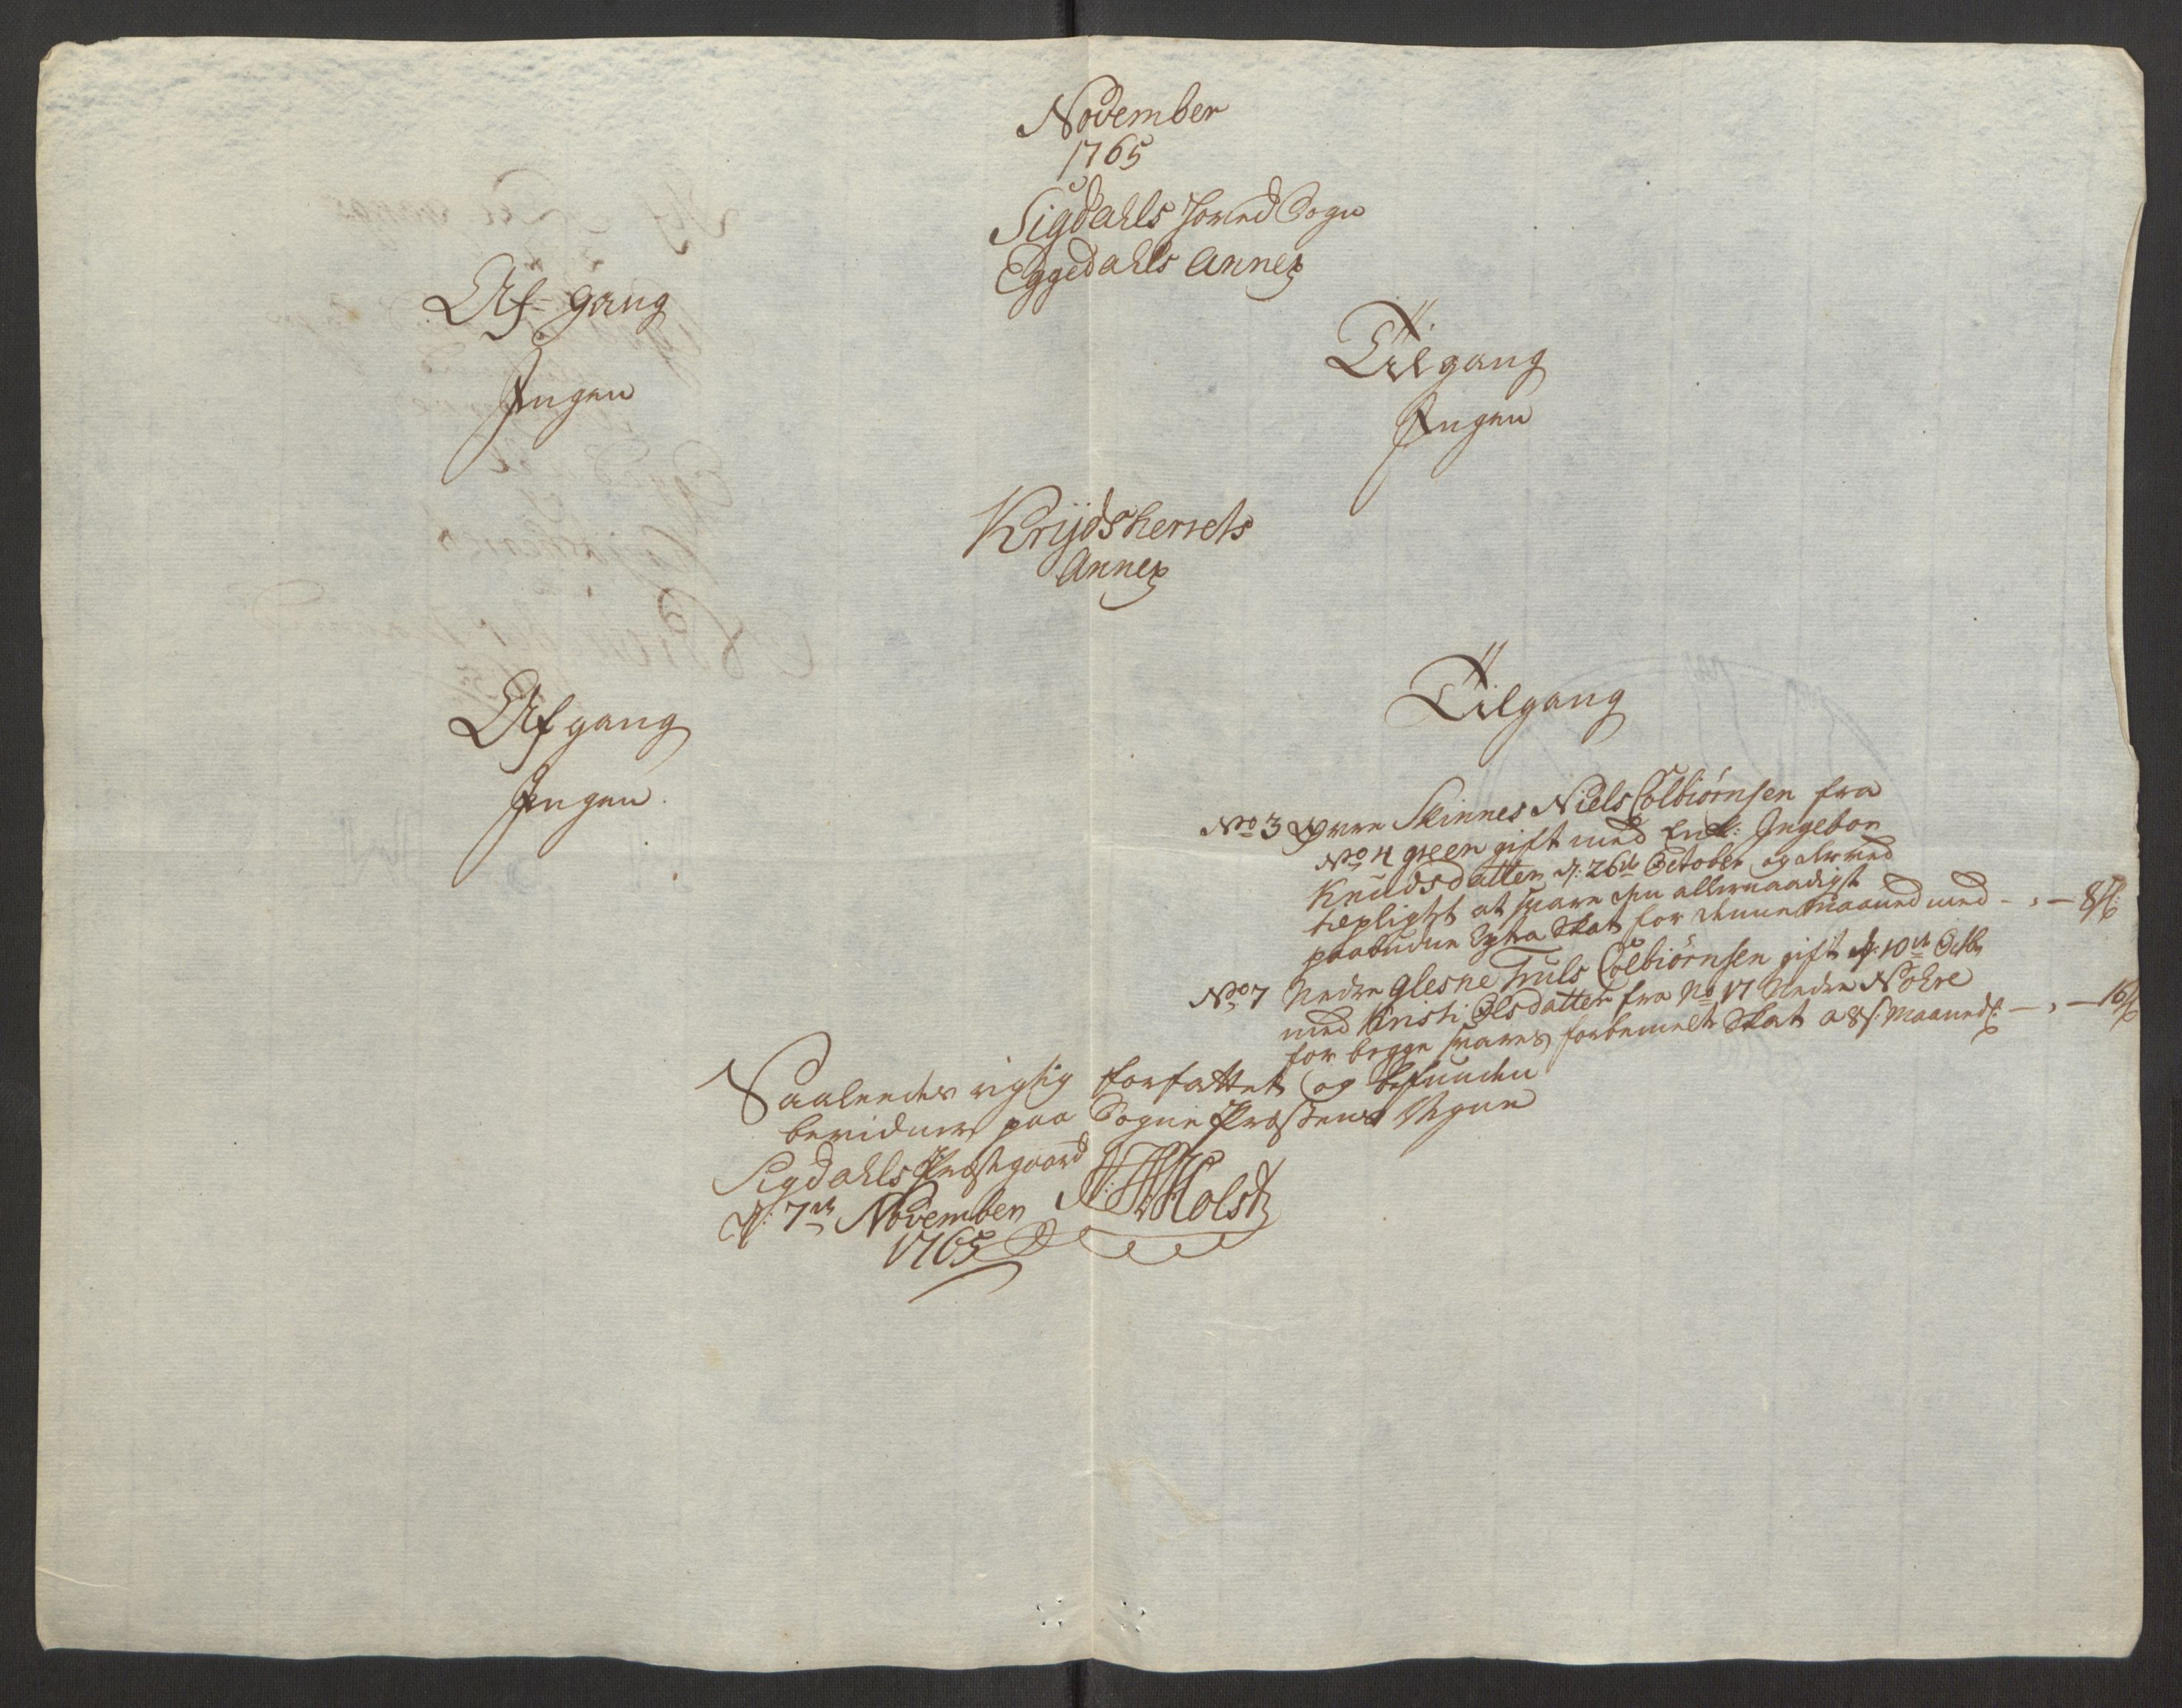 November
1765
Sigdahls Hoved Sogn
Eggedahls Annex
Af-gang
Ingen
Tilgang
Ingen
Krydsherrets
Annex
Afgang
Ingen
Tilgang
No 3 Øvre Skinnes Niels Colbiørnsen fra
No 4 Green gift med Enk: Ingebor
Knudsdatter d: 26de October og altsaa
tilpligtet at svare den allernaadigst
paabudne Extra Skat for denne Maaned med - , - 8 s:
No 7 Nedre Glesne Truls Colbiørnsen gift d: 10de Octbr
med Kristi Olsdatter fra No 17 Nedre Nohre
for begge svares forbemelte Skat a 8 s: Maaneds: - , - 16 s
Saaledes rigtig forfattet og befunden
bevidner paa Sogne Præstens Vegne
Sigdahls Præstegaard
d: 7de November
1765
Holst